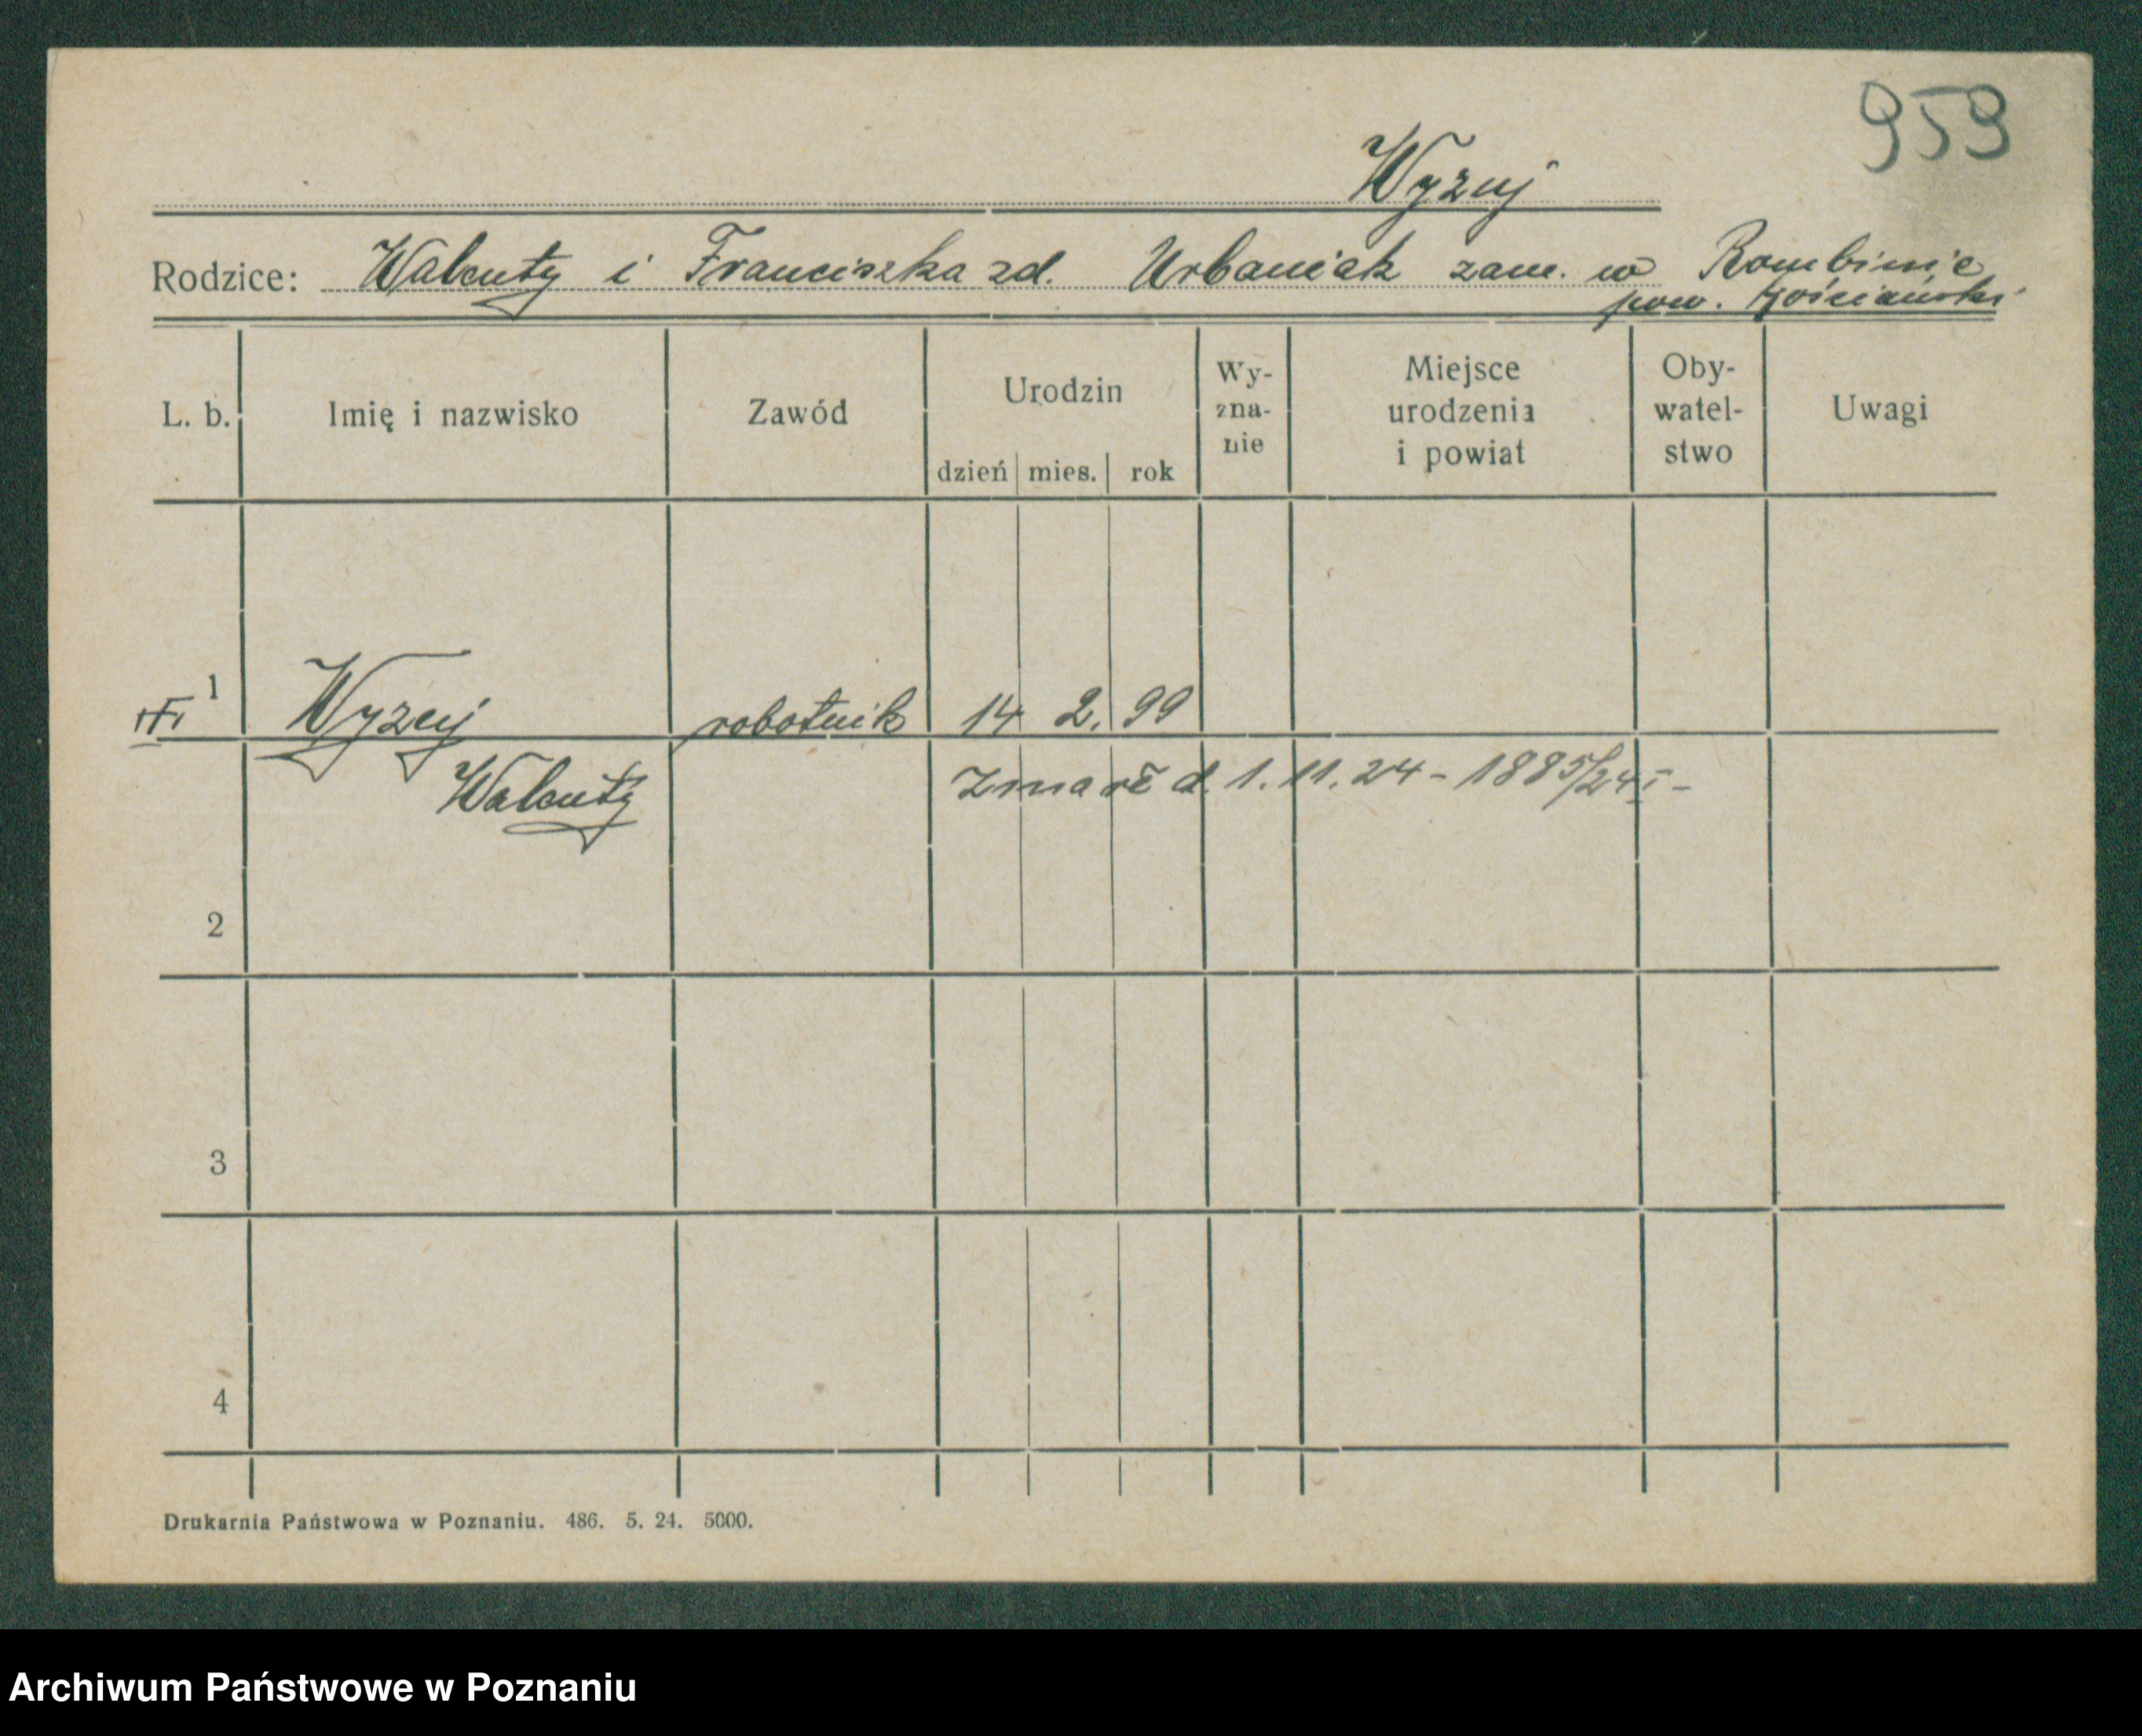 959
Wyzuj
Rodzice: Walenty i Franciszka zd. Urbaniak zam. w Rombinie
pow. Kościański
L. b. Imię i nazwisko Zawód Urodzin Wy-zna-nie Miejsce urodzenia i powiat Oby-watel-stwo Uwagi
dzień mies. rok
1 Wyzuj robotnik 14 2. 99
Walenty Zmarł d. 1.11.24 - 1885/24 I -
2
3
4
Drukarnia Państwowa w Poznaniu. 486. 5. 24. 5000.
Archiwum Państwowe w Poznaniu